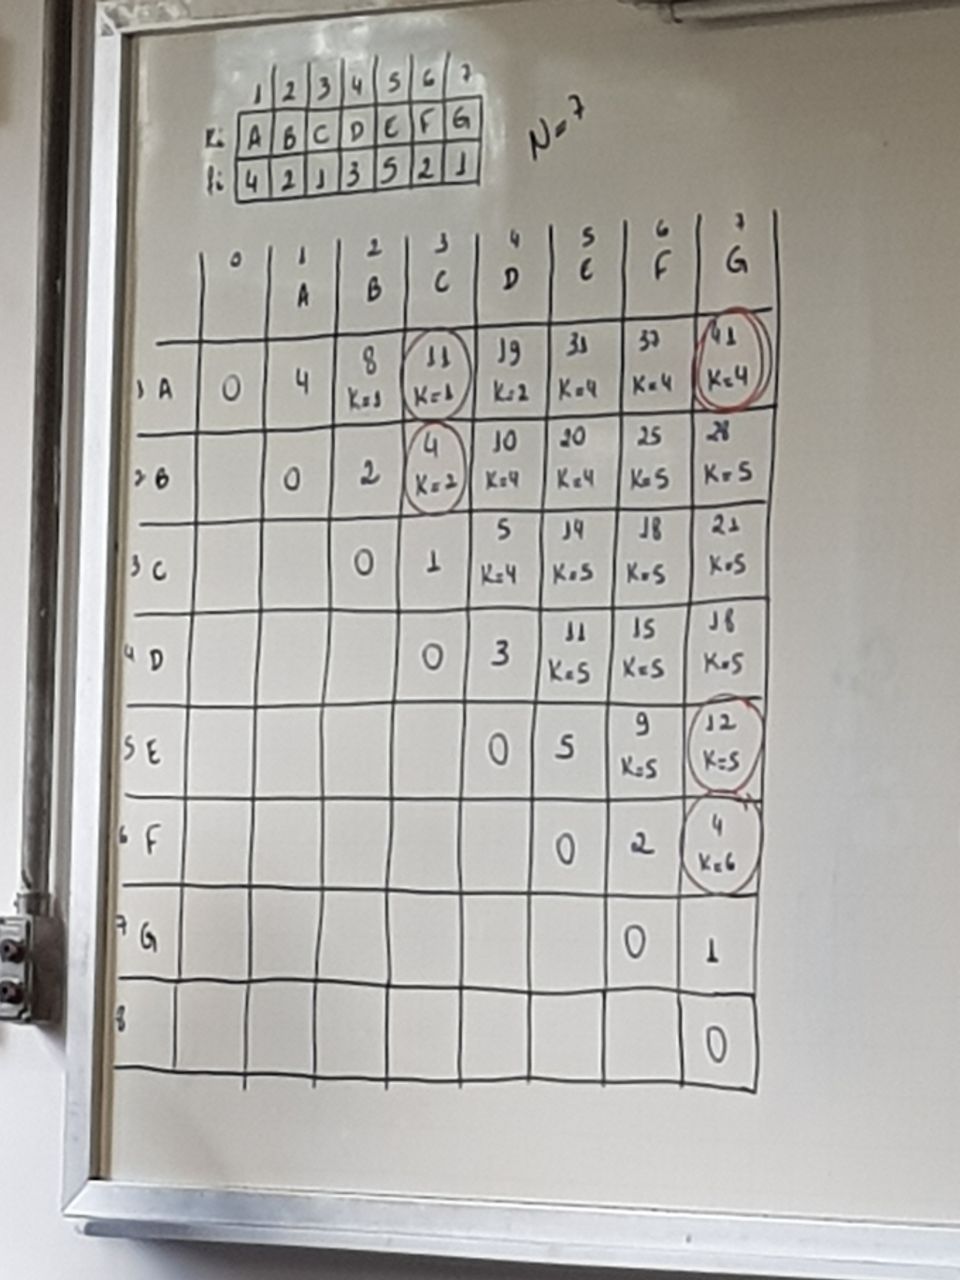 1 2 3 4 5 6 7
Ki A B C D E F G
fi 4 2 1 3 5 2 1
N=7
0 1 2 3 4 5 6 7
A B C D E F G
1 A 0 4 8 K=1 11 K=1 19 K=2 31 K=4 37 K=4 41 K=4
2 B 0 2 4 K=2 10 K=4 20 K=4 25 K=5 28 K=5
3 C 0 1 5 K=4 14 K=5 18 K=5 21 K=5
4 D 0 3 11 K=5 15 K=5 18 K=5
5 E 0 5 9 K=5 12 K=5
6 F 0 2 4 K=6
7 G 0 1
8 0